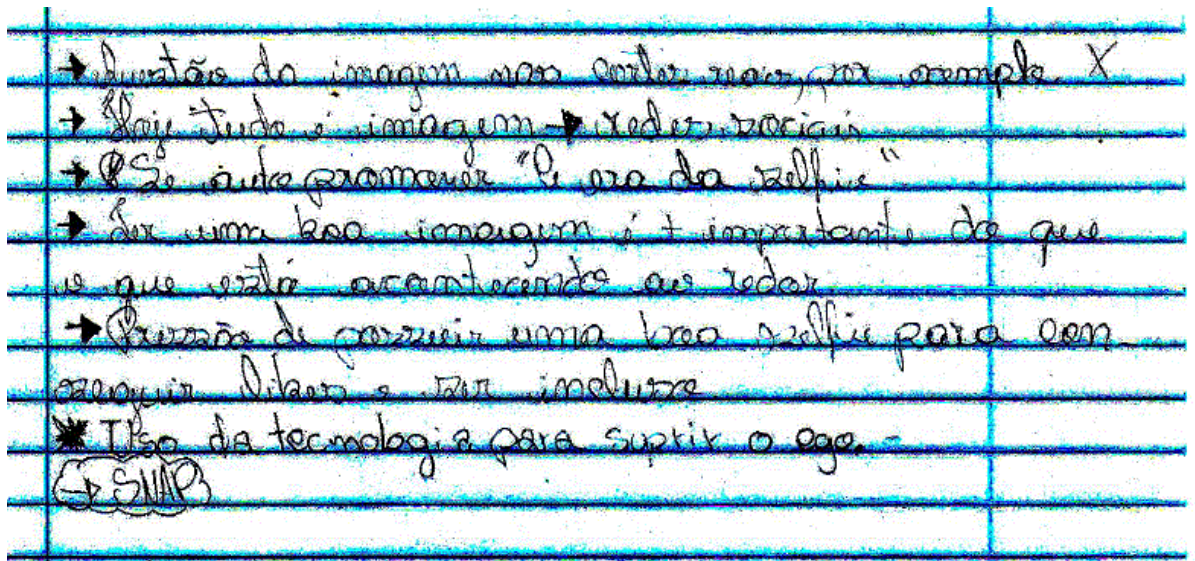 → Questão da imagem nas cortes reais, por exemplo X
→ Hoje tudo é imagem → redes sociais
→ Se auto promover "a era da selfie"
→ Ser uma boa imagem é + importante do que
o que está acontecendo ao redor.
→ Pressão de possuir uma boa selfie para con-
seguir likes e ser incluso
* Uso da tecnologia para suprir o ego. -
→ SNAP